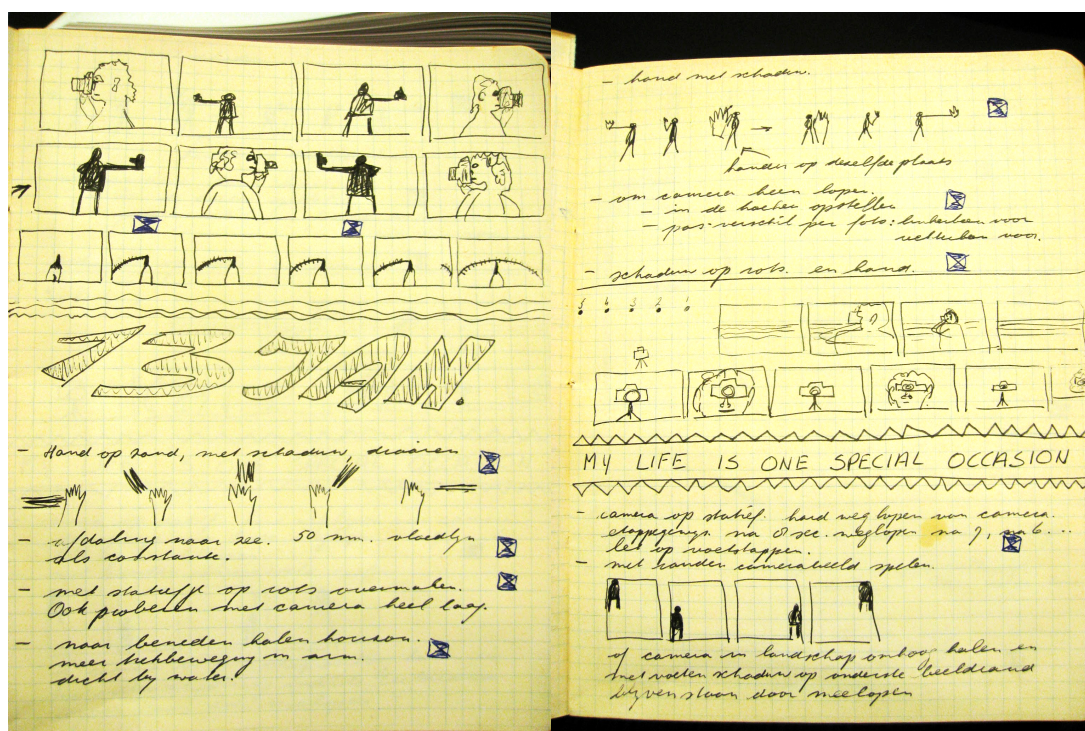 13 JAN.
- Hand op zand, met schaduw, draaien
- afdaling naar zee. 50 mm. vloedlijn
als constante.
- met statiefje op rots overmaken.
Ook proberen met camera heel laag.
- naar beneden halen horizon.
meer trekbeweging in arm.
dicht bij water.
- hand met schaduw.
handen op dezelfde plaats
- om camera heen lopen.
- in de hoeken opstellen
- pas-verschil per foto: linkerbeen voor
rechterbeen voor.
- schaduw op rots. en hand.
5 4 3 2 1
MY LIFE IS ONE SPECIAL OCCASION
- camera op statief. hard weglopen van camera.
na 8 sec. weglopen na 7, na 6...
let op voetstappen.
- met randen camerabeeld spelen.
of camera in landschap omhoog halen en
met voeten schaduw op onderste beeldrand
blijven staan door meelopen